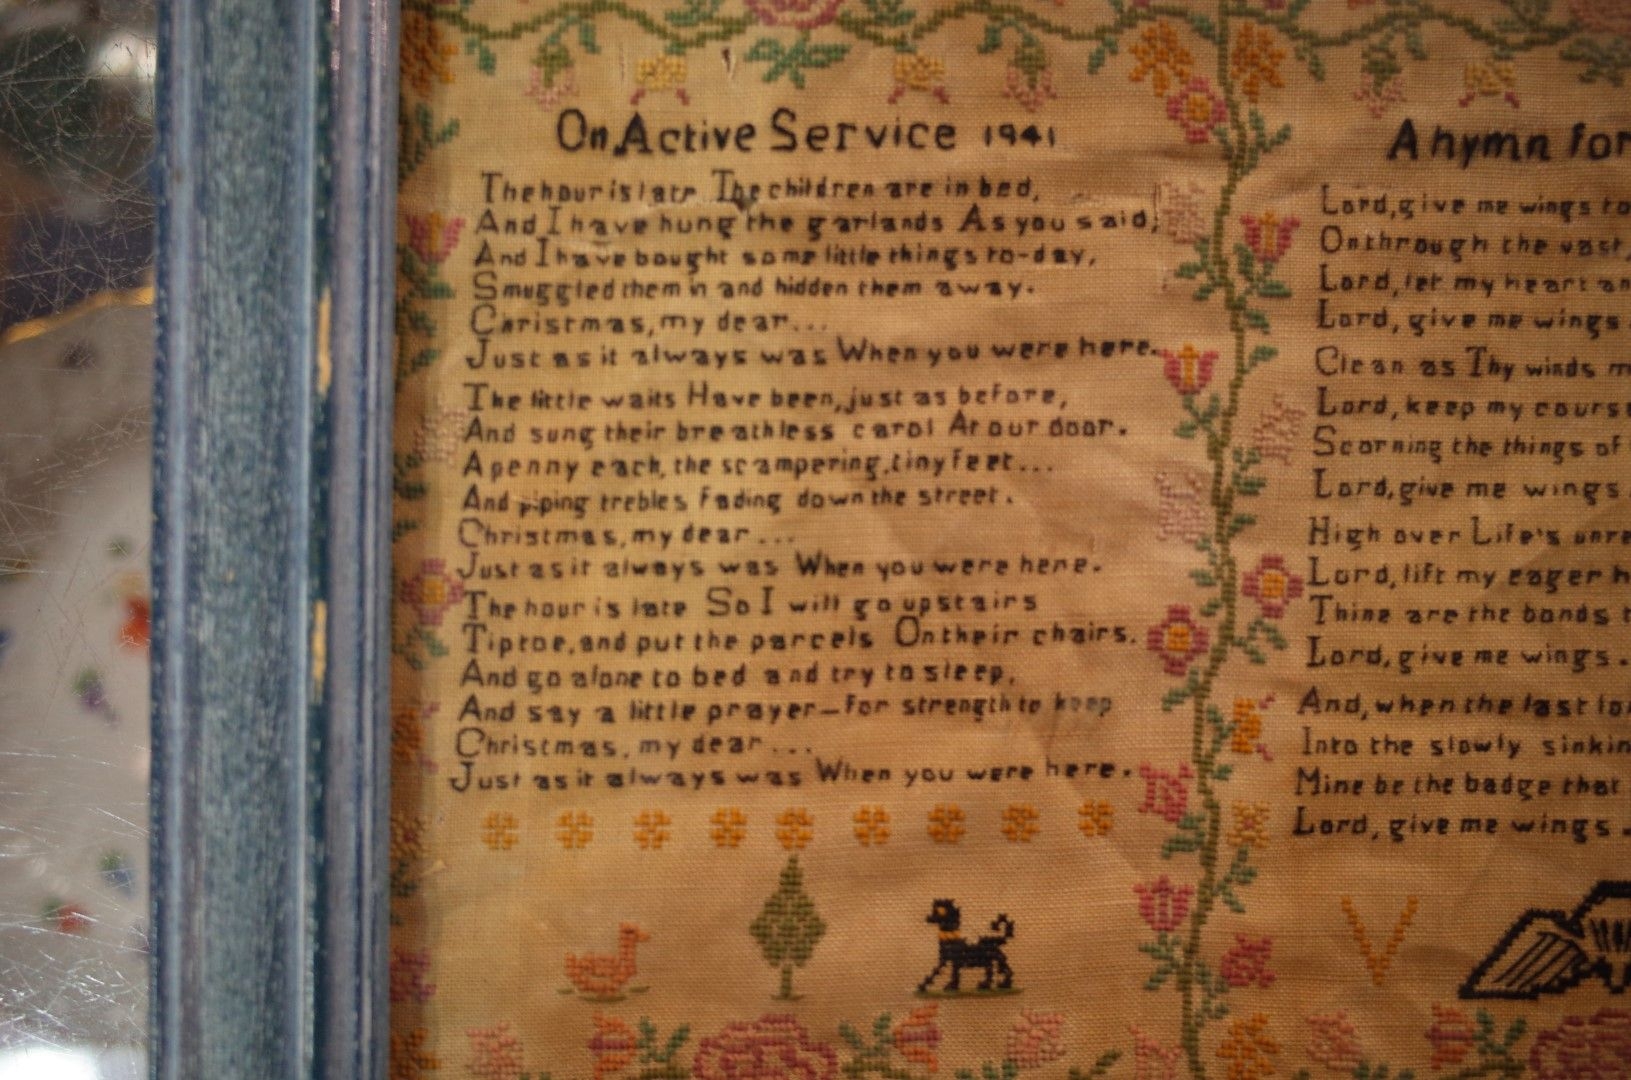 On Active Service 1941
The hour is late The children are in bed,
And I have hung the garlands As you said;
And I have bought some little things to-day,
Smuggled them in and hidden them away.
Christmas, my dear...
Just as it always was When you were here.
The little waits Have been, just as before,
And sung their breathless carol At our door.
A penny each, the scampering, tiny feet...
And piping trebles Fading down the street.
Christmas, my dear...
Just as it always was When you were here.
The hour is late So I will go upstairs
Tiptoe, and put the parcels On their chairs.
And go alone to bed and try to sleep,
And say a little prayer—For strength to keep
Christmas, my dear...
Just as it always was When you were here.
A hymn for
Lord, give me wings to
On through the vast,
Lord, let my heart an
Lord, give me wings.
Clean as Thy winds m
Lord, keep my course
Scorning the things of
Lord, give me wings.
High over Life's unre
Lord, lift my eager h
Thine are the bonds t
Lord, give me wings.
And, when the last lo
Into the slowly sinkin
Mine be the badge that
Lord, give me wings.
V